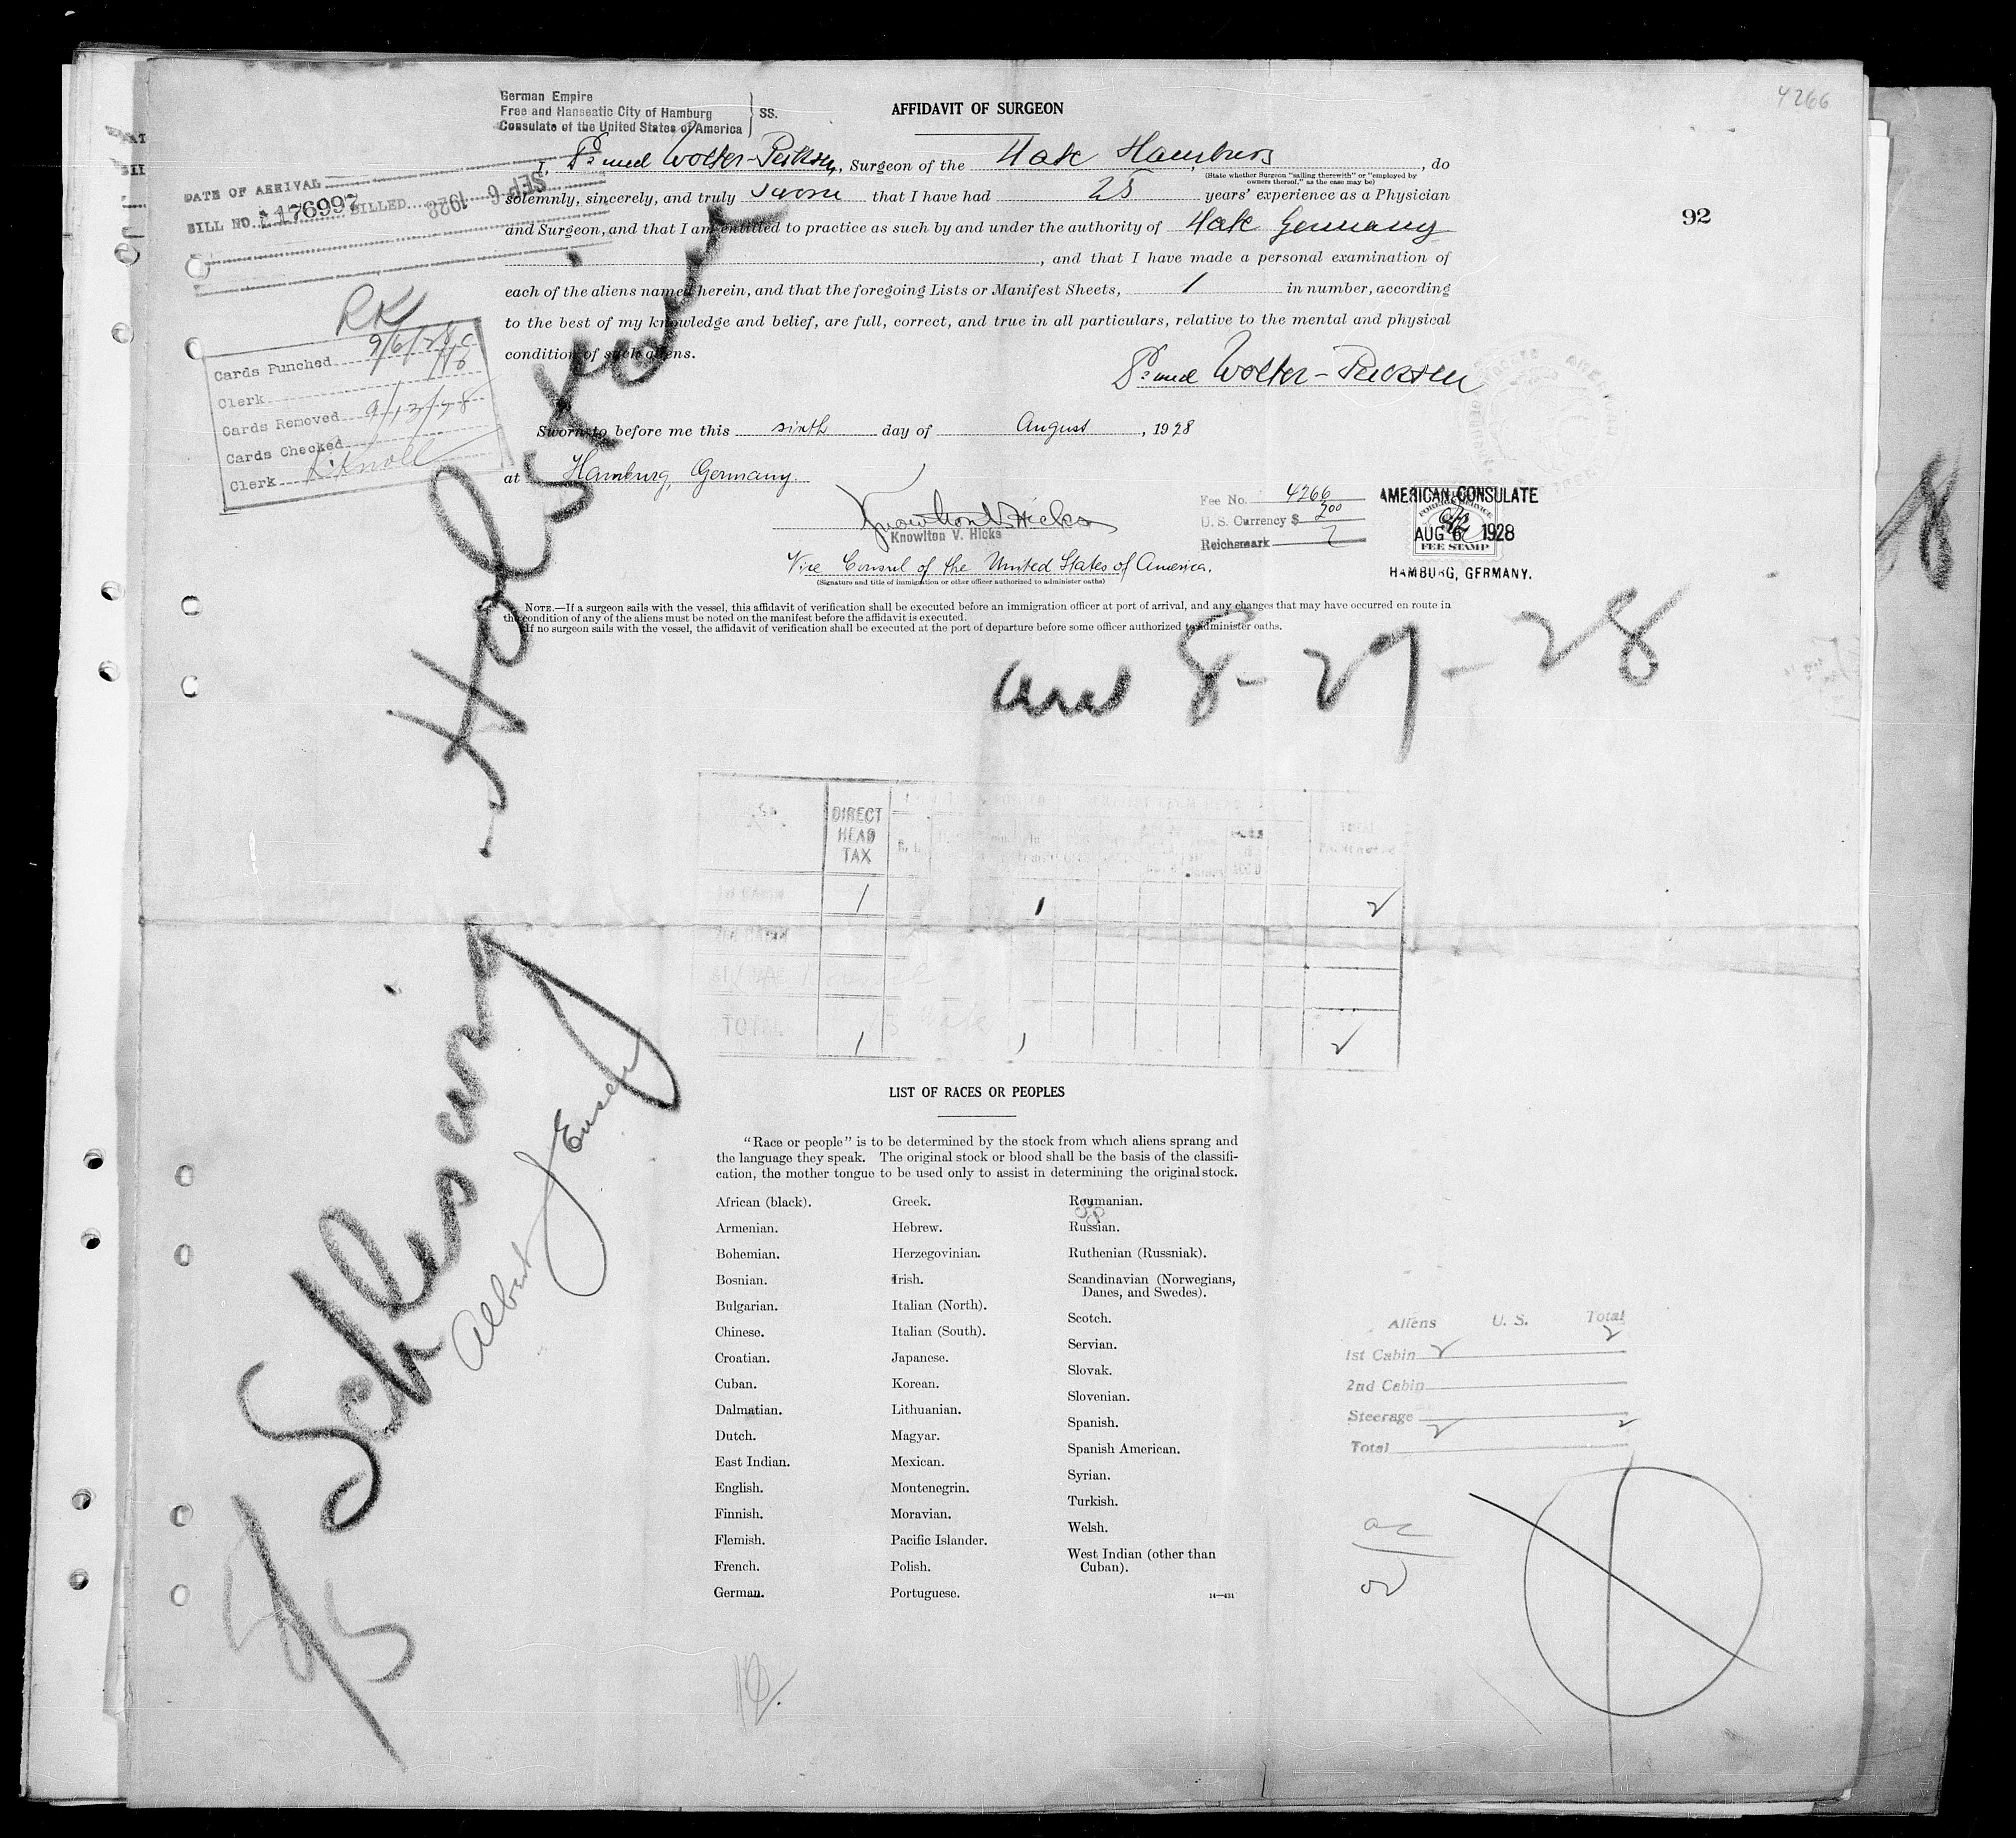 4266
German Empire
Free and Hanseatic City of Hamburg
Consulate of the United States of America
SS.
AFFIDAVIT OF SURGEON
I, Wolter-, Surgeon of the State Hamburg, do
(State whether Surgeon "sailing therewith" or "employed by
owners thereof," as the case may be)
solemnly, sincerely, and truly swore that I have had 25 years' experience as a Physician
and Surgeon, and that I am entitled to practice as such by and under the authority of State Germany
, and that I have made a personal examination of
each of the aliens named herein, and that the foregoing Lists or Manifest Sheets, 1 in number, according
to the best of my knowledge and belief, are full, correct, and true in all particulars, relative to the mental and physical
condition of such aliens.
Wolter-
Sworn to before me this sixth day of August, 1928
at Hamburg, Germany.
Knowlton V. Hicks
Knowlton V. Hicks
Vice Consul of the United States of America.
(Signature and title of immigration or other officer authorized to administer oaths)
Fee No. 4266
U. S. Currency $ 2.00
Reichsmark
AMERICAN CONSULATE
FOREIGN SERVICE
AUG 6 1928
FEE STAMP
HAMBURG, GERMANY.
NOTE.—If a surgeon sails with the vessel, this affidavit of verification shall be executed before an immigration officer at port of arrival, and any changes that may have occurred en route in
the condition of any of the aliens must be noted on the manifest before the affidavit is executed.
If no surgeon sails with the vessel, the affidavit of verification shall be executed at the port of departure before some officer authorized to administer oaths.
DATE OF ARRIVAL
BILL NO. 176997 BILLED SEP 6 1928
92
RK
Cards Punched 9/6/28
Clerk
Cards Removed 9/12/28
Cards Checked
Clerk R. Knoll
8
8-29-28
Schleswig-Holstein
Albert Jensen
9/5
DIRECT
HEAD
TAX
TOTAL
1st CABIN 1 1 2
2nd CABIN
TOTAL 1 1 2
LIST OF RACES OR PEOPLES
"Race or people" is to be determined by the stock from which aliens sprang and
the language they speak. The original stock or blood shall be the basis of the classifi-
cation, the mother tongue to be used only to assist in determining the original stock.
African (black).
Armenian.
Bohemian.
Bosnian.
Bulgarian.
Chinese.
Croatian.
Cuban.
Dalmatian.
Dutch.
East Indian.
English.
Finnish.
Flemish.
French.
German.
Greek.
Hebrew.
Herzegovinian.
Irish.
Italian (North).
Italian (South).
Japanese.
Korean.
Lithuanian.
Magyar.
Mexican.
Montenegrin.
Moravian.
Pacific Islander.
Polish.
Portuguese.
Roumanian.
Russian.
Ruthenian (Russniak).
Scandinavian (Norwegians,
Danes, and Swedes).
Scotch.
Servian.
Slovak.
Slovenian.
Spanish.
Spanish American.
Syrian.
Turkish.
Welsh.
West Indian (other than
Cuban).
14—431
Aliens U. S. Total
1st Cabin 2 2
2nd Cabin
Steerage
Total 2 2